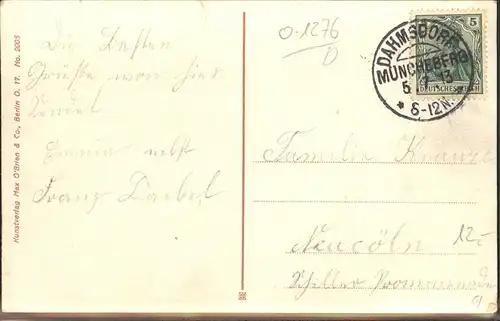 Kunstverlag Max O'Brien & Co., Berlin O. 17. No. 2005
Die besten
Grüsse von hier
sendet
nebst
Franz
0-1276
D
5
DEUTSCHES REICH
DAHMSDORF
MÜNCHEBERG
5. 13
* 8-12N.
Familie Krause
Neucöln
12.-
Schiller Promenade